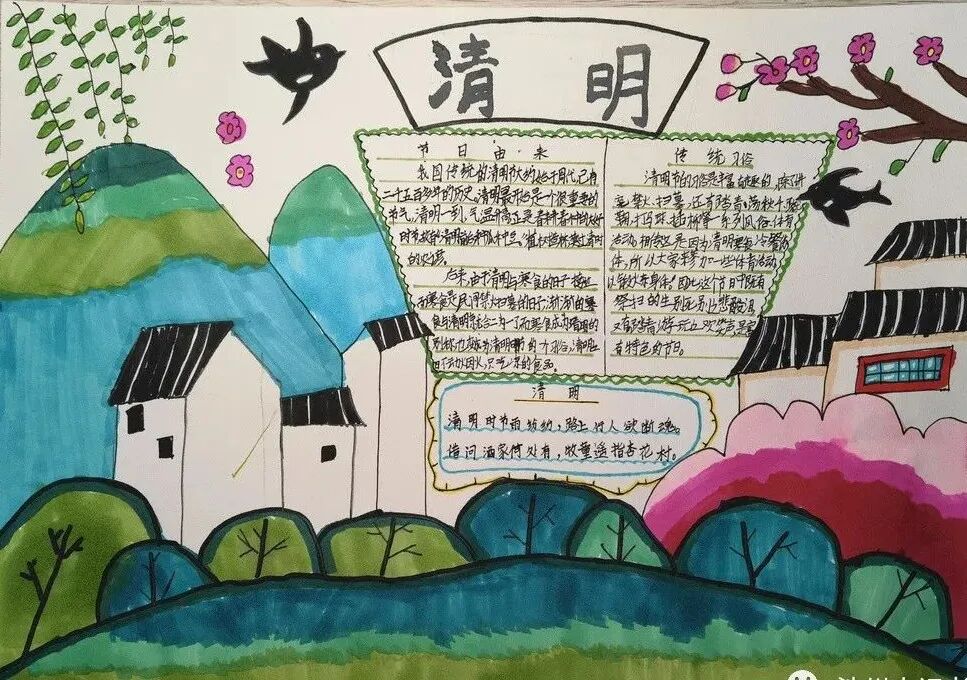 清 明
节日由来
我国传统的清明节大约始于周代,已有
二千五百多年的历史。清明最开始是一个很重要的
节气,清明一到,气温升高,正是春耕春种的大好
时节,故有清明前后种瓜种豆。植树造林莫过清明
的农谚。
后来,由于清明与寒食的日子接近
而寒食是民间禁火扫墓的日子,渐渐的寒
食与清明就合二为一了,而寒食成为清明的
别称,也成为清明的习俗,清明
日不动烟火,只吃凉的食品。
传统习俗
清明节的习俗是丰富有趣的,除了讲
究禁火、扫墓,还有踏青、荡秋千、蹴
鞠、打马球、插柳等一系列风俗体育
活动。相传这是因为清明要寒食禁火
,所以大家来参加一些体育活动
以锻炼身体。因此这个节日中既有
祭扫的生别死别悲酸泪
又有踏青游玩的欢笑声,是
有特色的节日。
清 明
清明时节雨纷纷,路上行人欲断魂。
借问酒家何处有,牧童遥指杏花村。